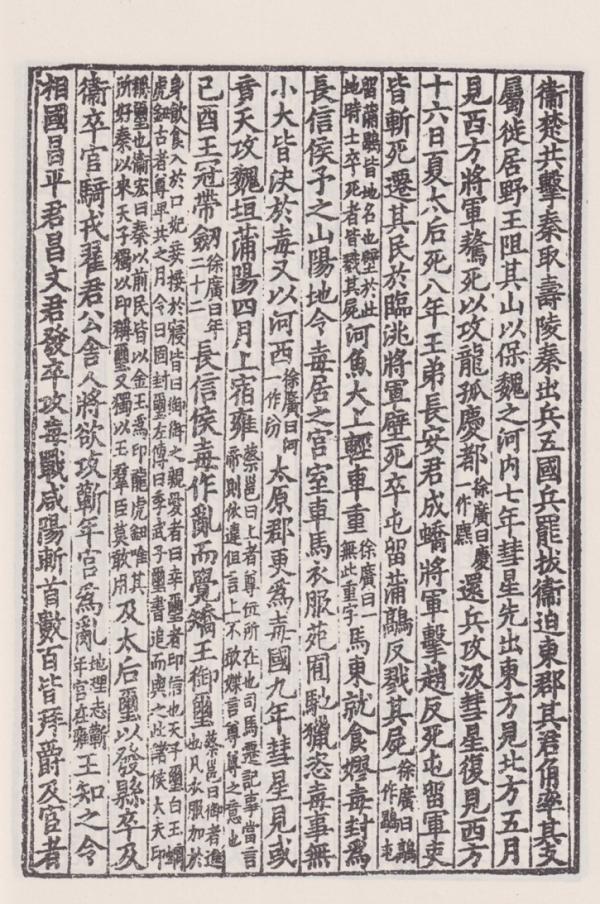 衞楚共擊秦取壽陵秦出兵五國兵罷拔衞迫東郡其君角率其支
屬徙居野王阻其山以保魏之河內七年彗星先出東方見北方五月
見西方將軍驁死以攻龍孤慶都徐廣曰慶一作麃還兵攻汲彗星復見西方
十六日夏太后死八年王弟長安君成蟜將軍擊趙反死屯留軍吏
皆斬死遷其民於臨洮將軍壁死卒屯留蒲鶮反戮其屍徐廣曰鶮一作鶡屯
留蒲鶮皆地名也壁於此地時士卒死者皆戮其屍河魚大上輕車重徐廣曰一無此重字馬東就食嫪毐封爲
長信侯予之山陽地令毐居之宮室車馬衣服苑囿馳獵恣毐事無
小大皆決於毐又以河西徐廣曰河一作汾太原郡更爲毐國九年彗星見或
竟天攻魏垣蒲陽四月上宿雍蔡邕曰上者尊位所在也司馬遷記事當言帝則依違但言上不敢媟言尊尊之意也
己酉王冠帶劒徐廣曰年二十二長信侯毐作亂而覺矯王御璽蔡邕曰御者進也凡衣服加於
身飲食入於口妃妾接於寢皆曰御御之親愛者曰幸璽者印信也天子璽白玉螭虎鈕古者尊卑共之月令曰固封璽左傳曰季武子璽書追而與之此諸侯大夫印
稱璽也衞宏曰秦以前民皆以金玉爲印龍虎鈕唯其所好秦以來天子獨以印稱璽又獨以玉羣臣莫敢用及太后璽以發縣卒及
衞卒官騎戎翟君公舍人將欲攻蘄年宮爲亂地理志蘄年宮在雍王知之令
相國昌平君昌文君發卒攻毐戰咸陽斬首數百皆拜爵及官者